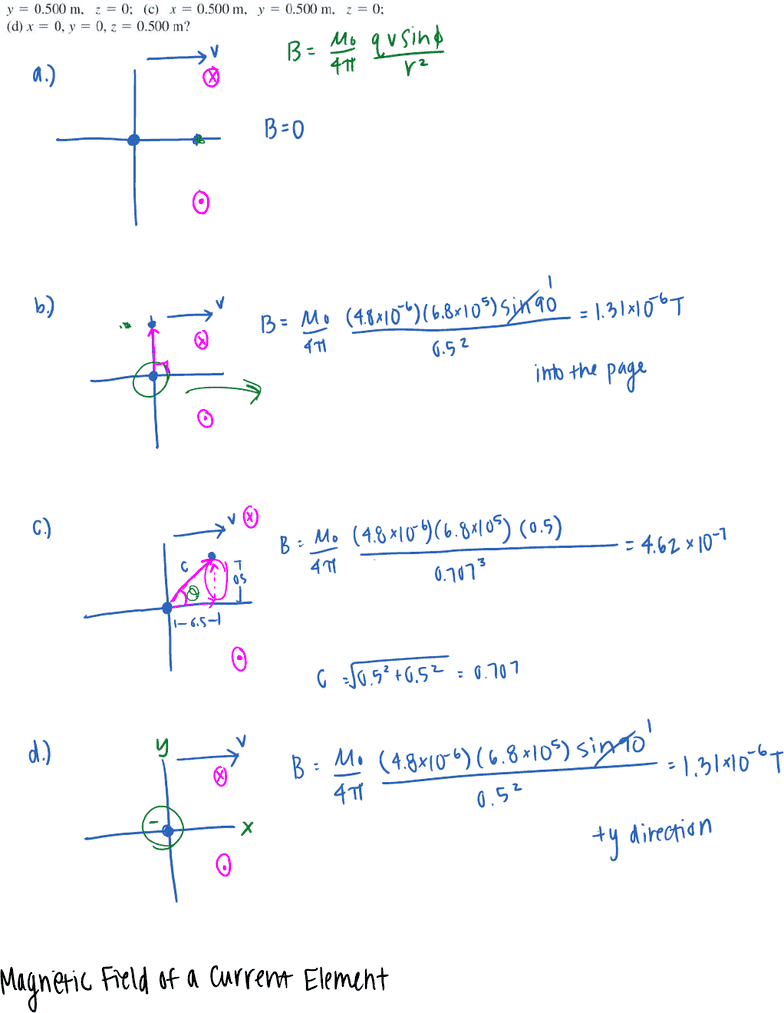 y = 0.500 m, z = 0; (c) x = 0.500 m, y = 0.500 m, z = 0;
(d) x = 0, y = 0, z = 0.500 m?
B = μ₀/4π qvsinϕ/r²
a.) v
B=0
b.) v
B = μ₀/4π (4.8x10⁻⁶)(6.8x10⁵)sin90 1/0.5² = 1.31x10⁻⁶T
into the page
c.) v
B = μ₀/4π (4.8x10⁻⁶)(6.8x10⁵)(0.5)/0.707³ = 4.62x10⁻⁷
c θ 0.5
|-0.5-|
c = √0.5²+0.5² = 0.707
d.) y v
B = μ₀/4π (4.8x10⁻⁶)(6.8x10⁵)sin90 1/0.5² = 1.31x10⁻⁶T
- x
+y direction
Magnetic Field of a Current Element